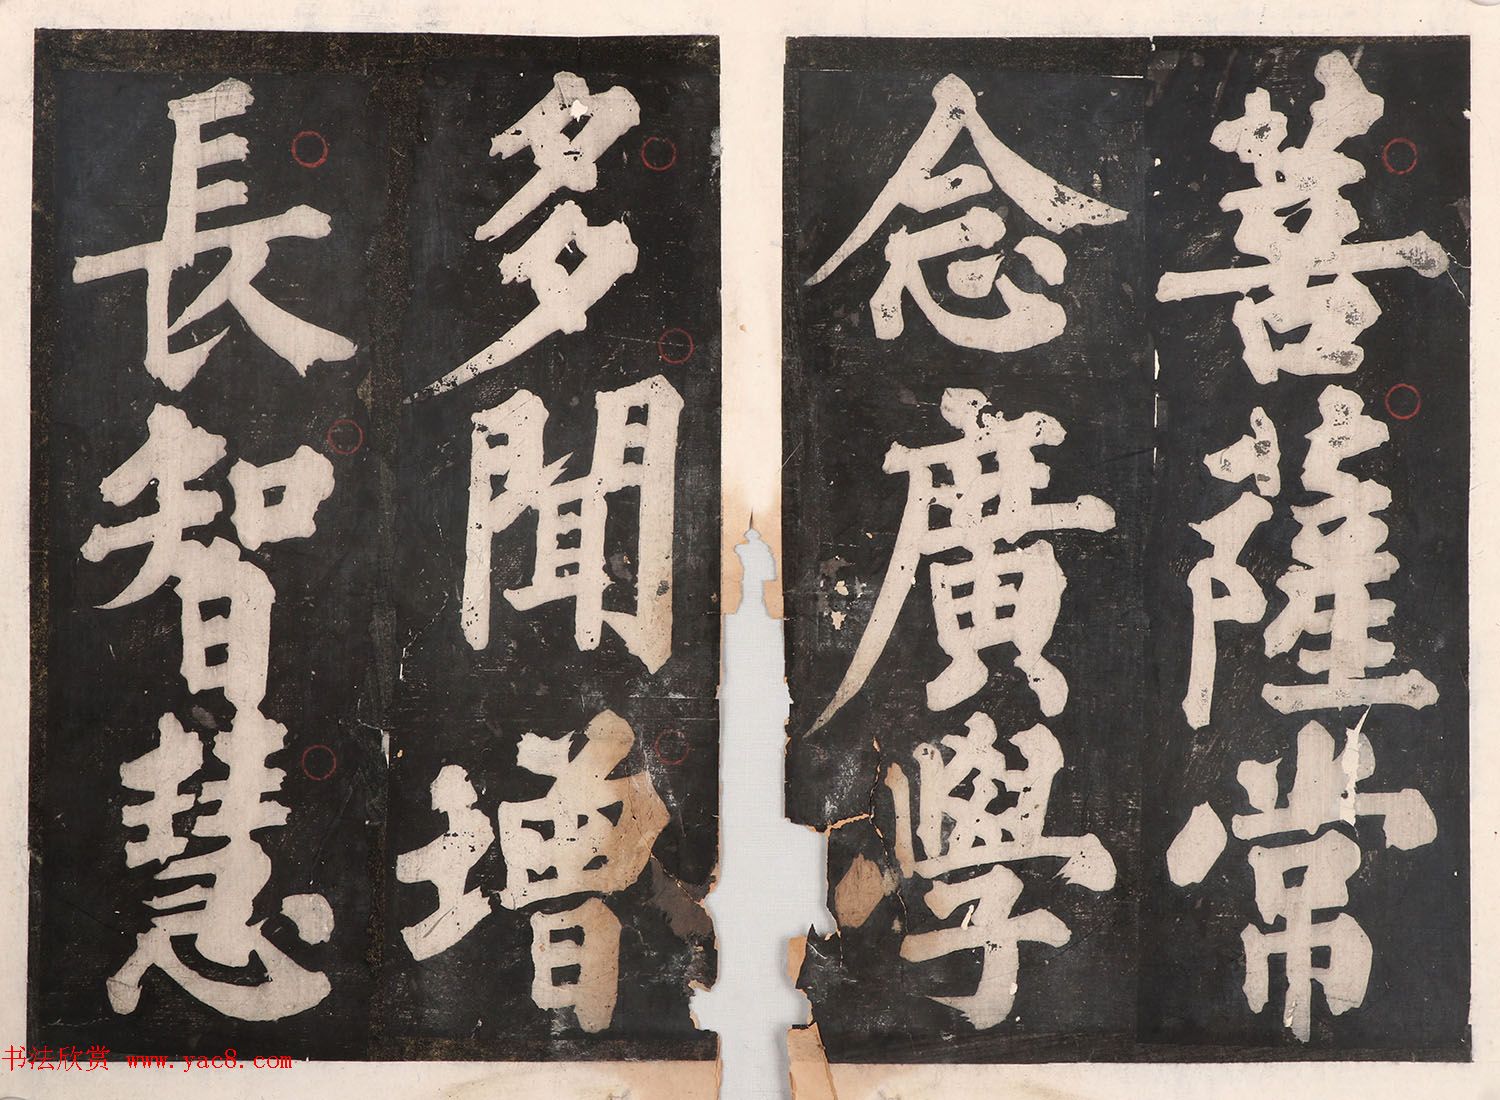 善薩常
念廣學
多聞增
長智慧
书法欣赏 www.yac8.com